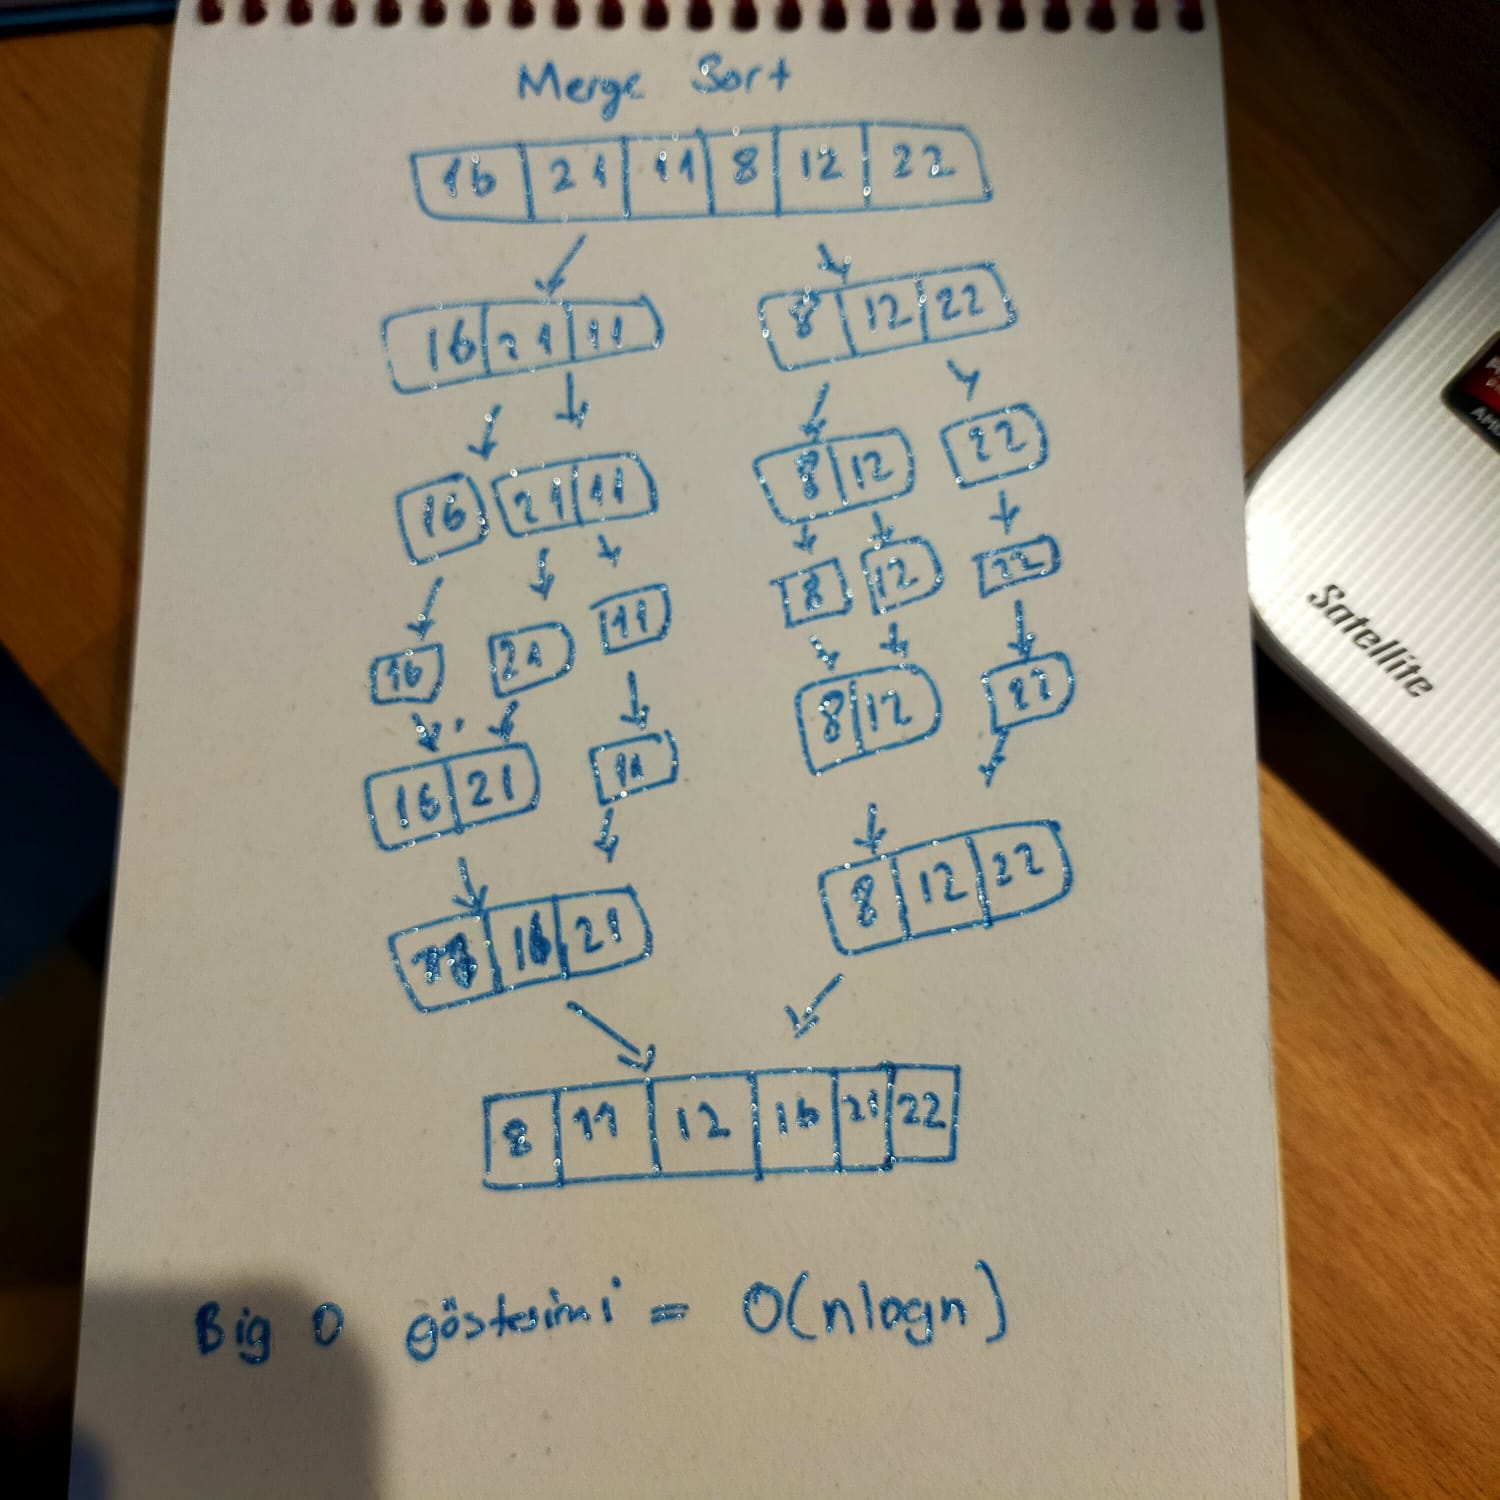 Merge Sort
16 21 11 8 12 22
16 21 11 8 12 22
16 21 11 8 12 22
16 21 11 8 12 22
16 21 11 8 12 22
11 16 21 8 12 22
8 11 12 16 21 22
Big O gösterimi = O(nlogn)
Satellite